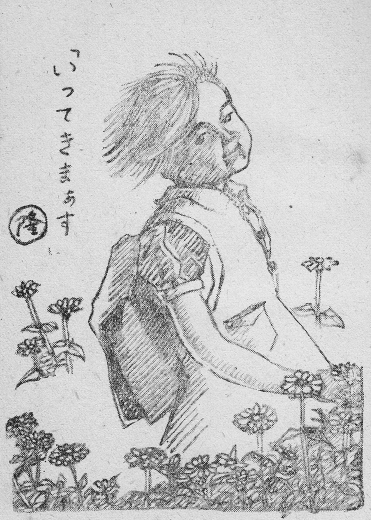 「いってきまぁす
隆